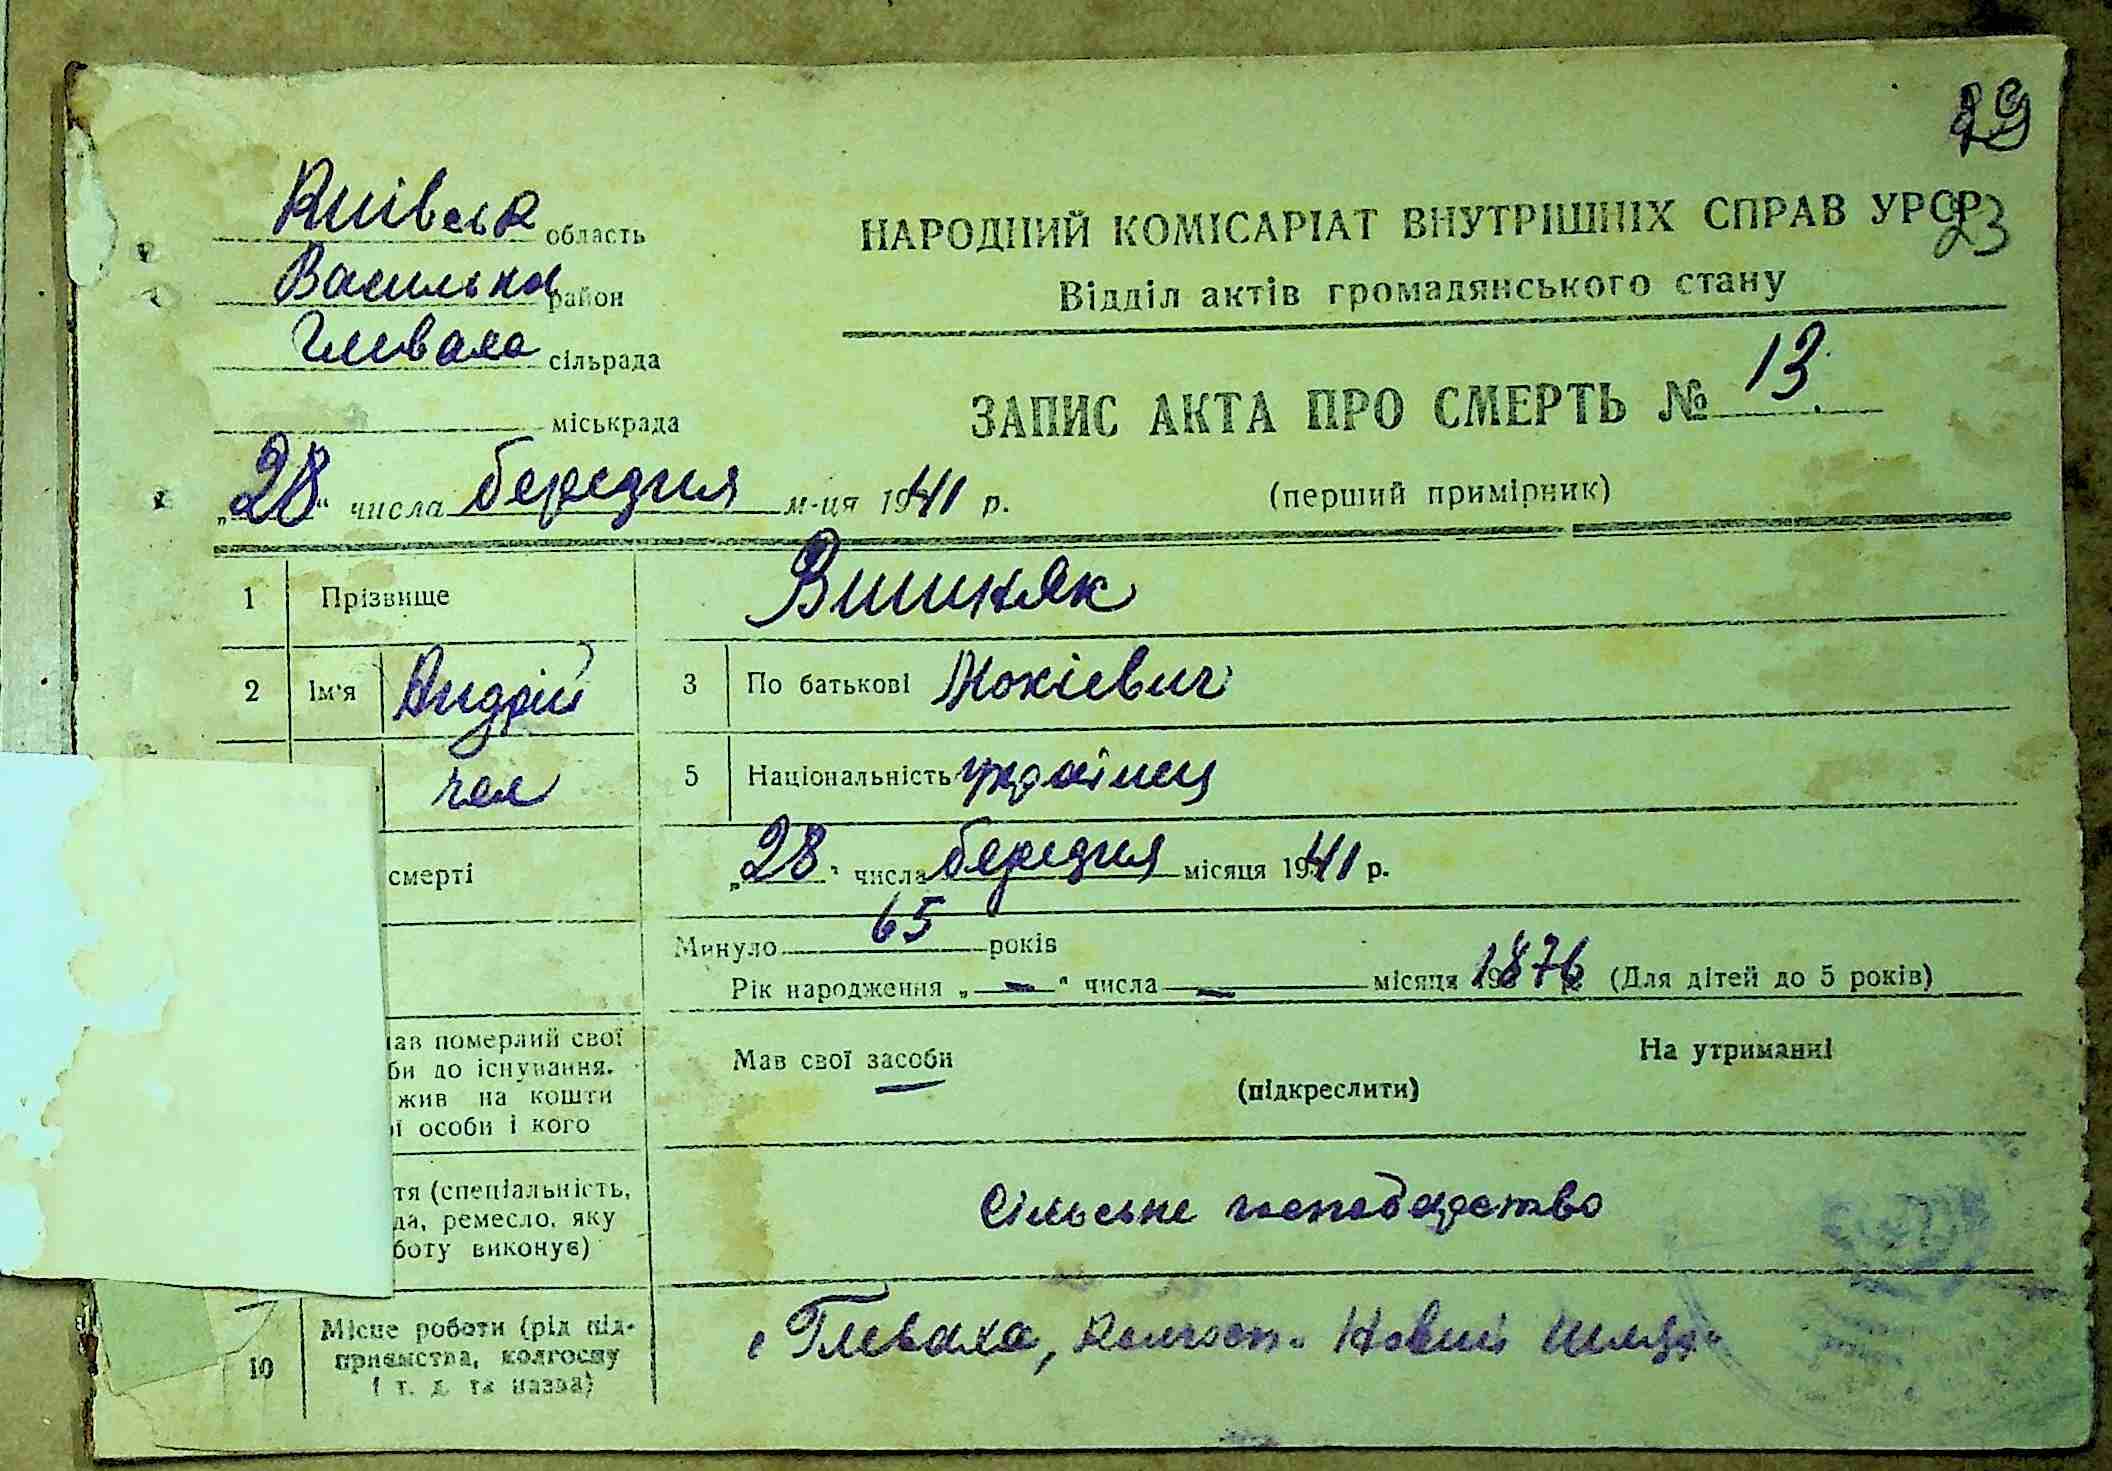 29
23
Київськ область
Васильків район
Глеваха сільрада
міськрада
НАРОДНИЙ КОМІСАРІАТ ВНУТРІШНІХ СПРАВ УРСР
Відділ актів громадянського стану
ЗАПИС АКТА ПРО СМЕРТЬ № 13.
(перший примірник)
„28“ числа березня м-ця 1941 р.
1 Прізвище Вишняк
2 Ім'я Андрій 3 По батькові Мокієвич
чол 5 Національність українец
смерті „28“ числа березня місяця 1941 р.
Минуло 65 років
Рік народження „—“ числа — місяця 1876 (Для дітей до 5 років)
ав померлий свої
би до існування.
жив на кошти
ї особи і кого
Мав свої засоби На утриманні
(підкреслити)
тя (спеціальність,
да, ремесло, яку
боту виконує)
Сільське господарство
10 Місце роботи (рід під-
приємства, колгоспу
і т. д. та назва)
с Глеваха, Колгосп. Новий Шлях